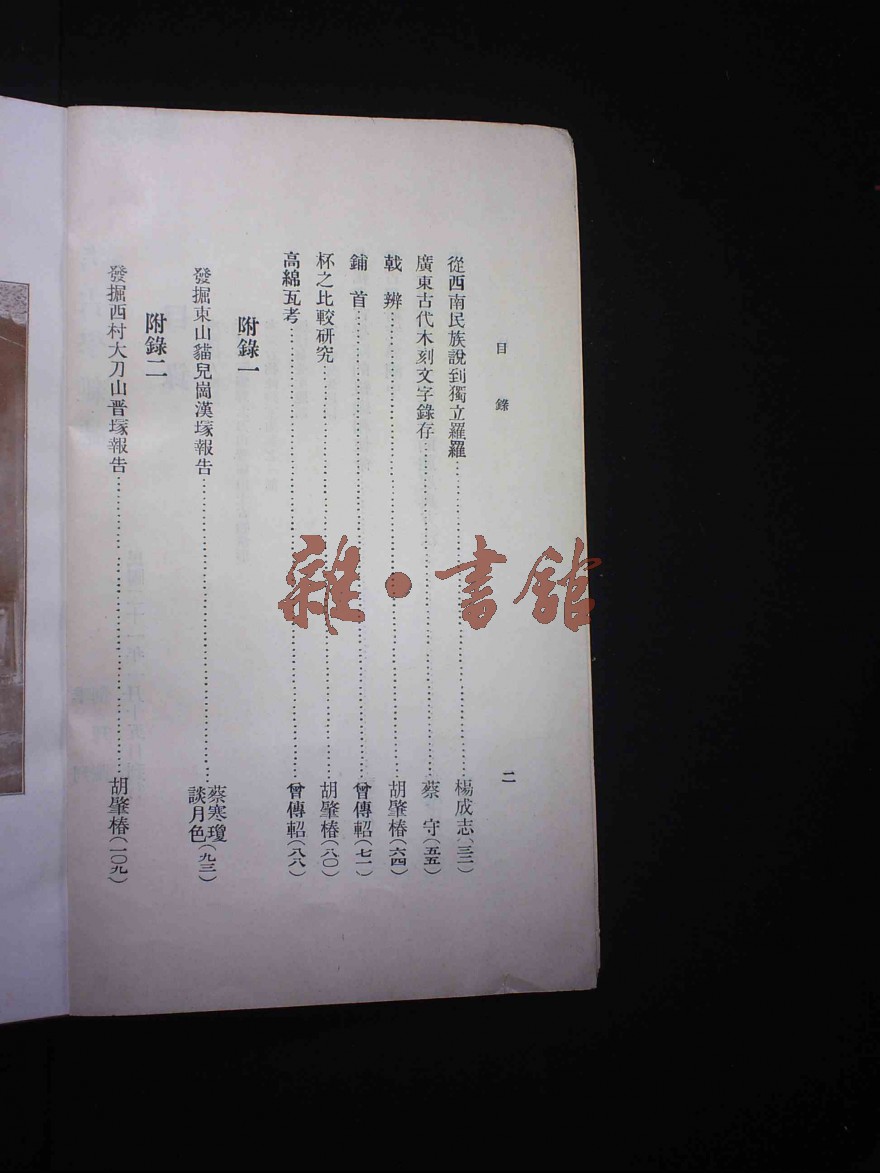 目錄
二
從西南民族說到獨立羅羅……楊成志(三三)
廣東古代木刻文字錄存……蔡守(五五)
戟辨……胡肇椿(六四)
鋪首……曾傳軺(七一)
杯之比較研究……胡肇椿(八〇)
高綿瓦考……曾傳軺(八八)
附錄一
發掘東山貓兒崗漢塚報告……蔡寒瓊 談月色(九三)
附錄二
發掘西村大刀山晋塚報告……胡肇椿(一〇九)
雜·書館